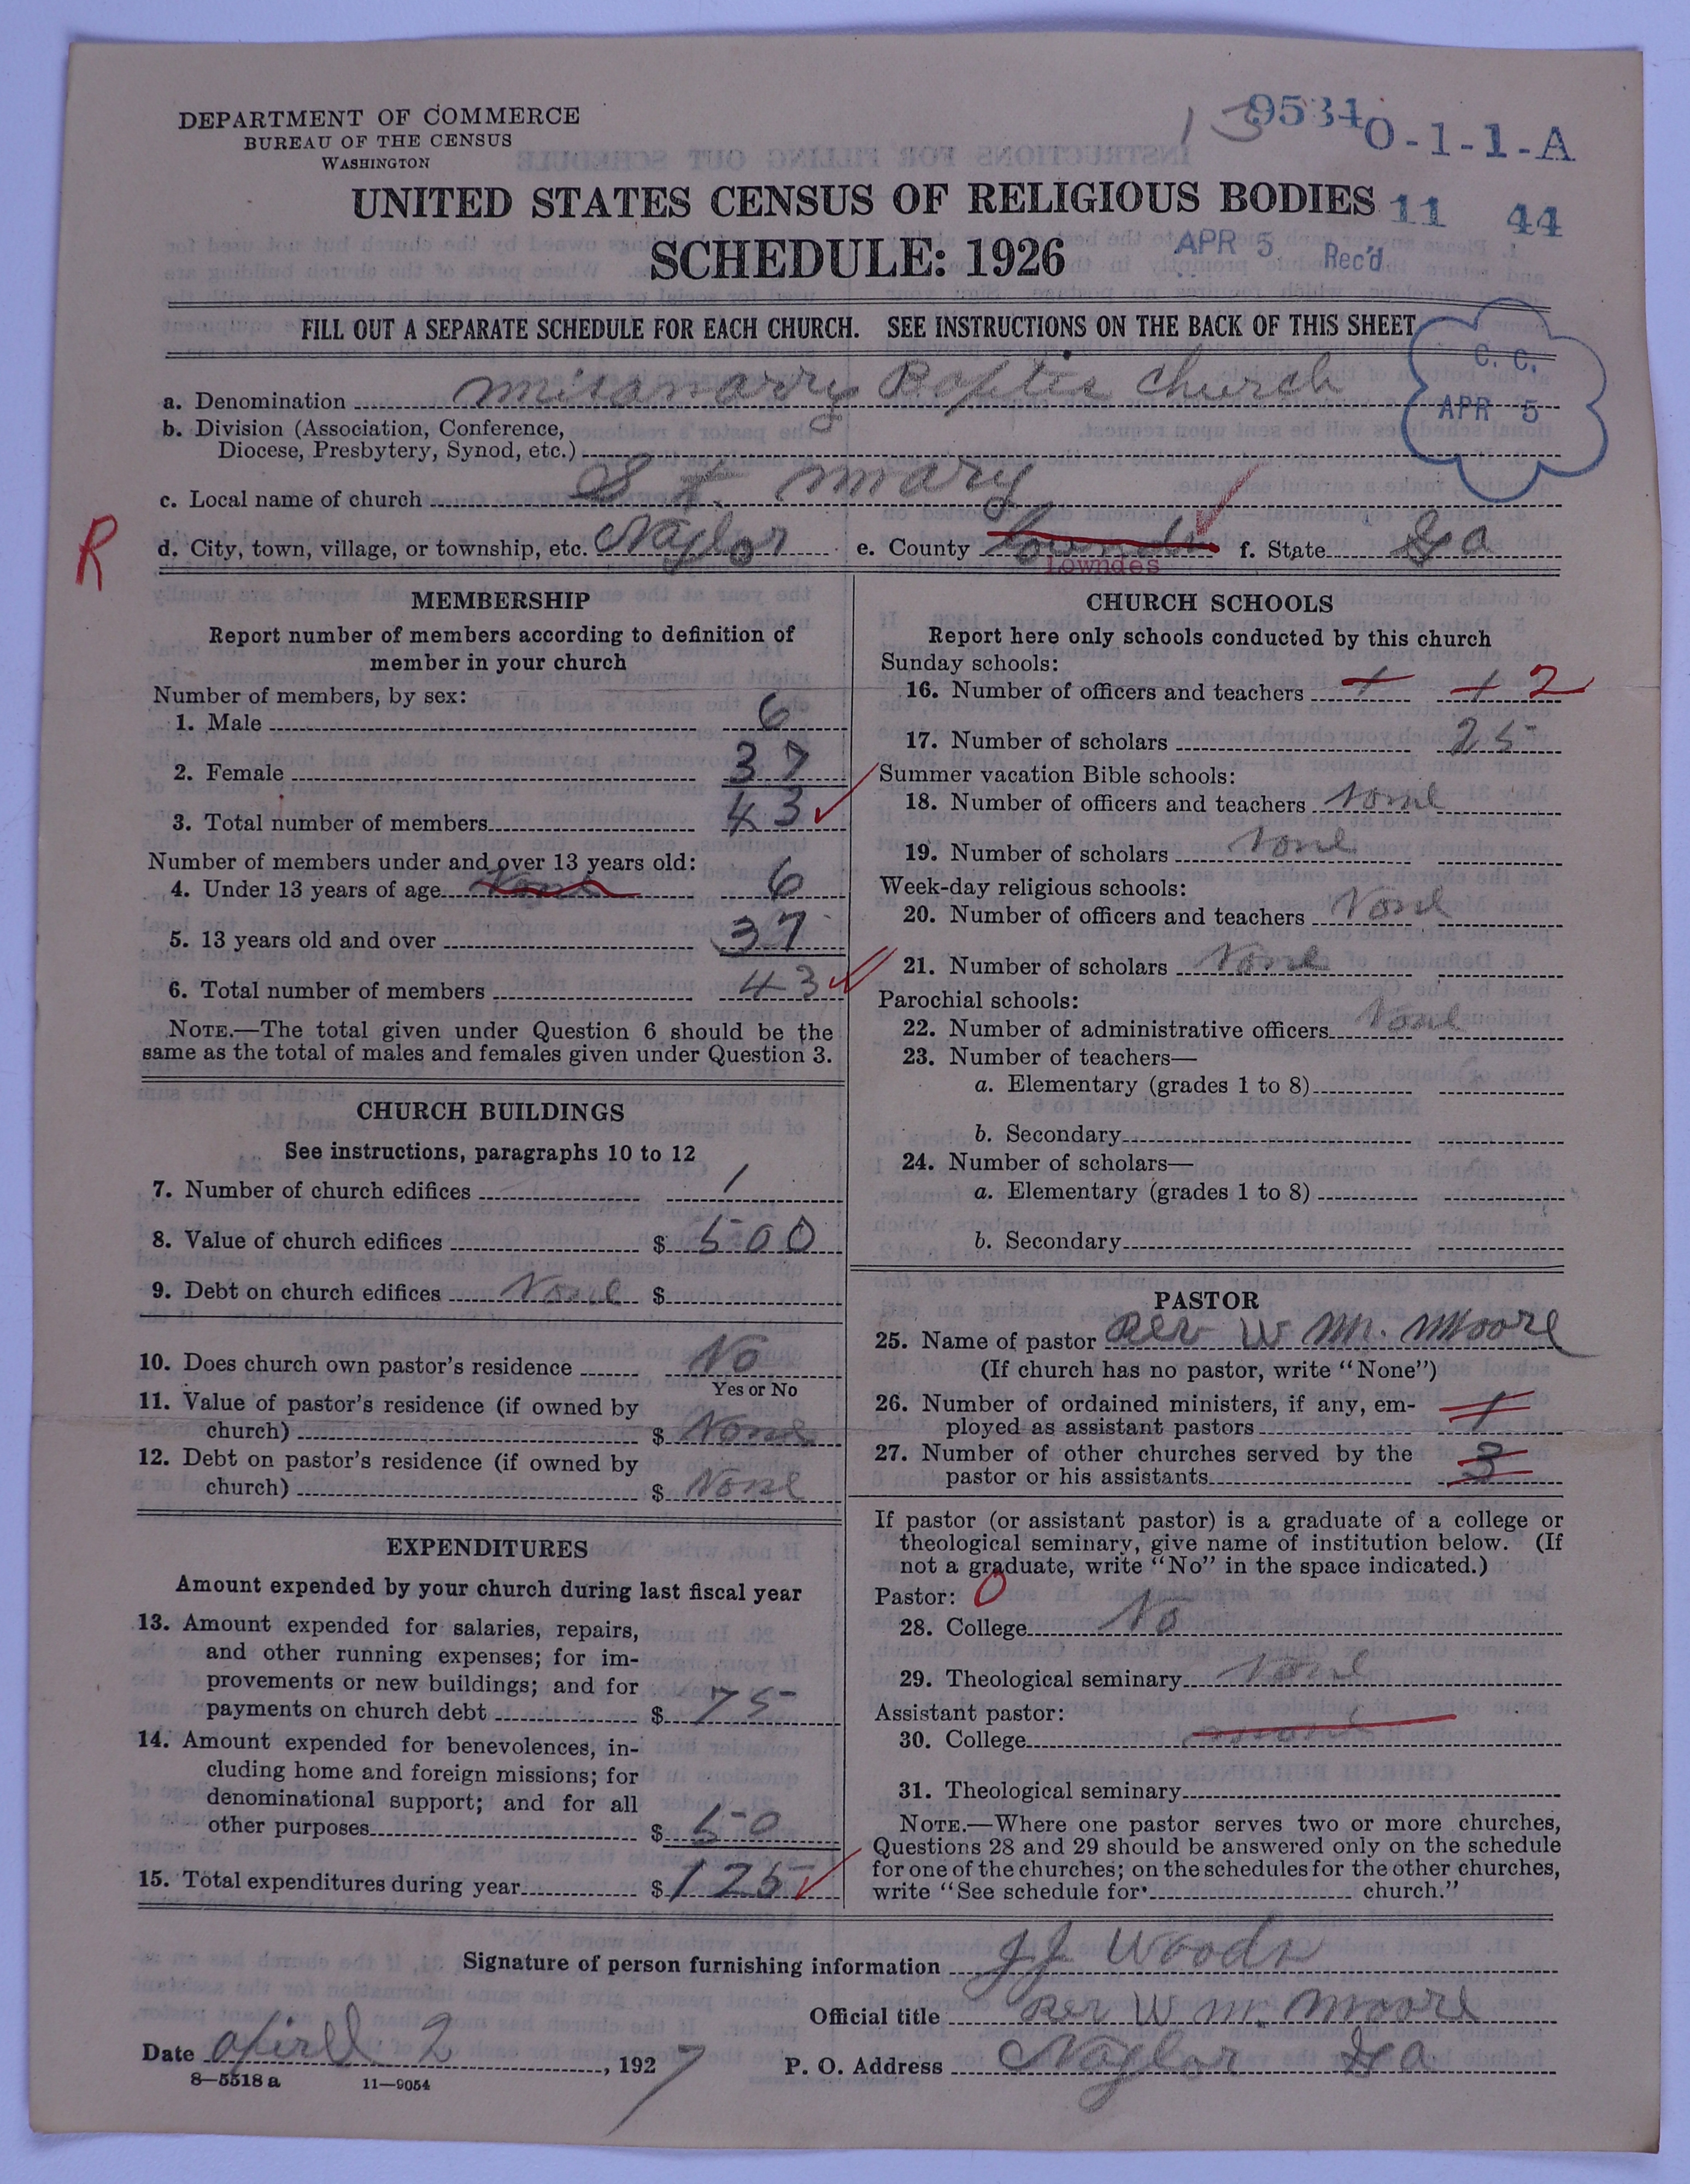 DEPARTMENT OF COMMERCE
BUREAU OF THE CENSUS
WASHINGTON
13 9534 0-1-1-A
UNITED STATES CENSUS OF RELIGIOUS BODIES
11 44
SCHEDULE: 1926
APR 5 Rec'd
FILL OUT A SEPARATE SCHEDULE FOR EACH CHURCH. SEE INSTRUCTIONS ON THE BACK OF THIS SHEET
C. C.
APR 5
a. Denomination misonarry Baptis church
b. Division (Association, Conference,
Diocese, Presbytery, Synod, etc.)
c. Local name of church St mary
R
d. City, town, village, or township, etc. Naylor e. County Lownds f. State Ga
Lowndes
MEMBERSHIP
Report number of members according to definition of
member in your church
Number of members, by sex:
1. Male 6
2. Female 37
3. Total number of members 43
Number of members under and over 13 years old:
4. Under 13 years of age None 6
5. 13 years old and over 37
6. Total number of members 43
NOTE.—The total given under Question 6 should be the
same as the total of males and females given under Question 3.
CHURCH BUILDINGS
See instructions, paragraphs 10 to 12
7. Number of church edifices 1
8. Value of church edifices $ 500
9. Debt on church edifices None $
10. Does church own pastor's residence No
Yes or No
11. Value of pastor's residence (if owned by
church) $ None
12. Debt on pastor's residence (if owned by
church) $ None
EXPENDITURES
Amount expended by your church during last fiscal year
13. Amount expended for salaries, repairs,
and other running expenses; for im-
provements or new buildings; and for
payments on church debt $ 75
14. Amount expended for benevolences, in-
cluding home and foreign missions; for
denominational support; and for all
other purposes $ 50
15. Total expenditures during year $ 125
CHURCH SCHOOLS
Report here only schools conducted by this church
Sunday schools:
16. Number of officers and teachers 1 1 2
17. Number of scholars 25
Summer vacation Bible schools:
18. Number of officers and teachers None
19. Number of scholars None
Week-day religious schools:
20. Number of officers and teachers None
21. Number of scholars None
Parochial schools:
22. Number of administrative officers None
23. Number of teachers—
a. Elementary (grades 1 to 8)
b. Secondary
24. Number of scholars—
a. Elementary (grades 1 to 8)
b. Secondary
PASTOR
25. Name of pastor Rev W M. Moore
(If church has no pastor, write "None")
26. Number of ordained ministers, if any, em-
ployed as assistant pastors 1
27. Number of other churches served by the
pastor or his assistants 3
If pastor (or assistant pastor) is a graduate of a college or
theological seminary, give name of institution below. (If
not a graduate, write "No" in the space indicated.)
Pastor: 0
28. College No
29. Theological seminary None
Assistant pastor:
30. College
31. Theological seminary
NOTE.—Where one pastor serves two or more churches,
Questions 28 and 29 should be answered only on the schedule
for one of the churches; on the schedules for the other churches,
write "See schedule for church."
Signature of person furnishing information J J Woods
Official title Rev W m. Moore
Date Apirl 2, 1927 P. O. Address Naylor Ga
8—5518 a 11—9054